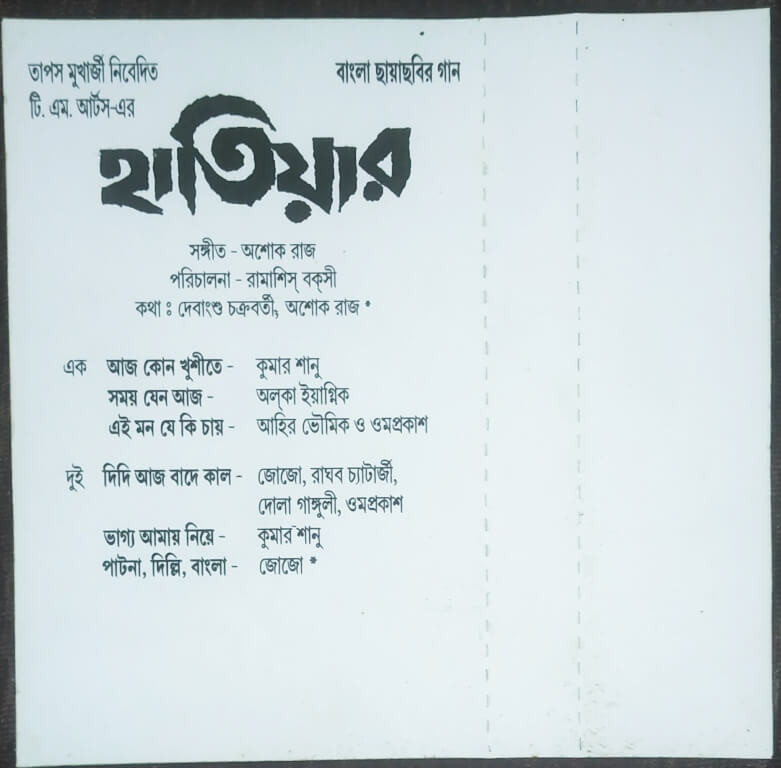 তাপস মুখার্জী নিবেদিত
বাংলা ছায়াছবির গান
টি. এম. আর্টস-এর
হাতিয়ার
সঙ্গীত - অশোক রাজ
পরিচালনা - রামাশিস্ বক্সী
কথা ঃ দেবাংশু চক্রবর্তী, অশোক রাজ *
এক আজ কোন খুশীতে - কুমার শানু
সময় যেন আজ - অল্কা ইয়াগ্নিক
এই মন যে কি চায় - আহির ভৌমিক ও ওমপ্রকাশ
দুই দিদি আজ বাদে কাল - জোজো, রাঘব চ্যাটার্জী,
দোলা গাঙ্গুলী, ওমপ্রকাশ
ভাগ্য আমায় নিয়ে - কুমার শানু
পাটনা, দিল্লি, বাংলা - জোজো *